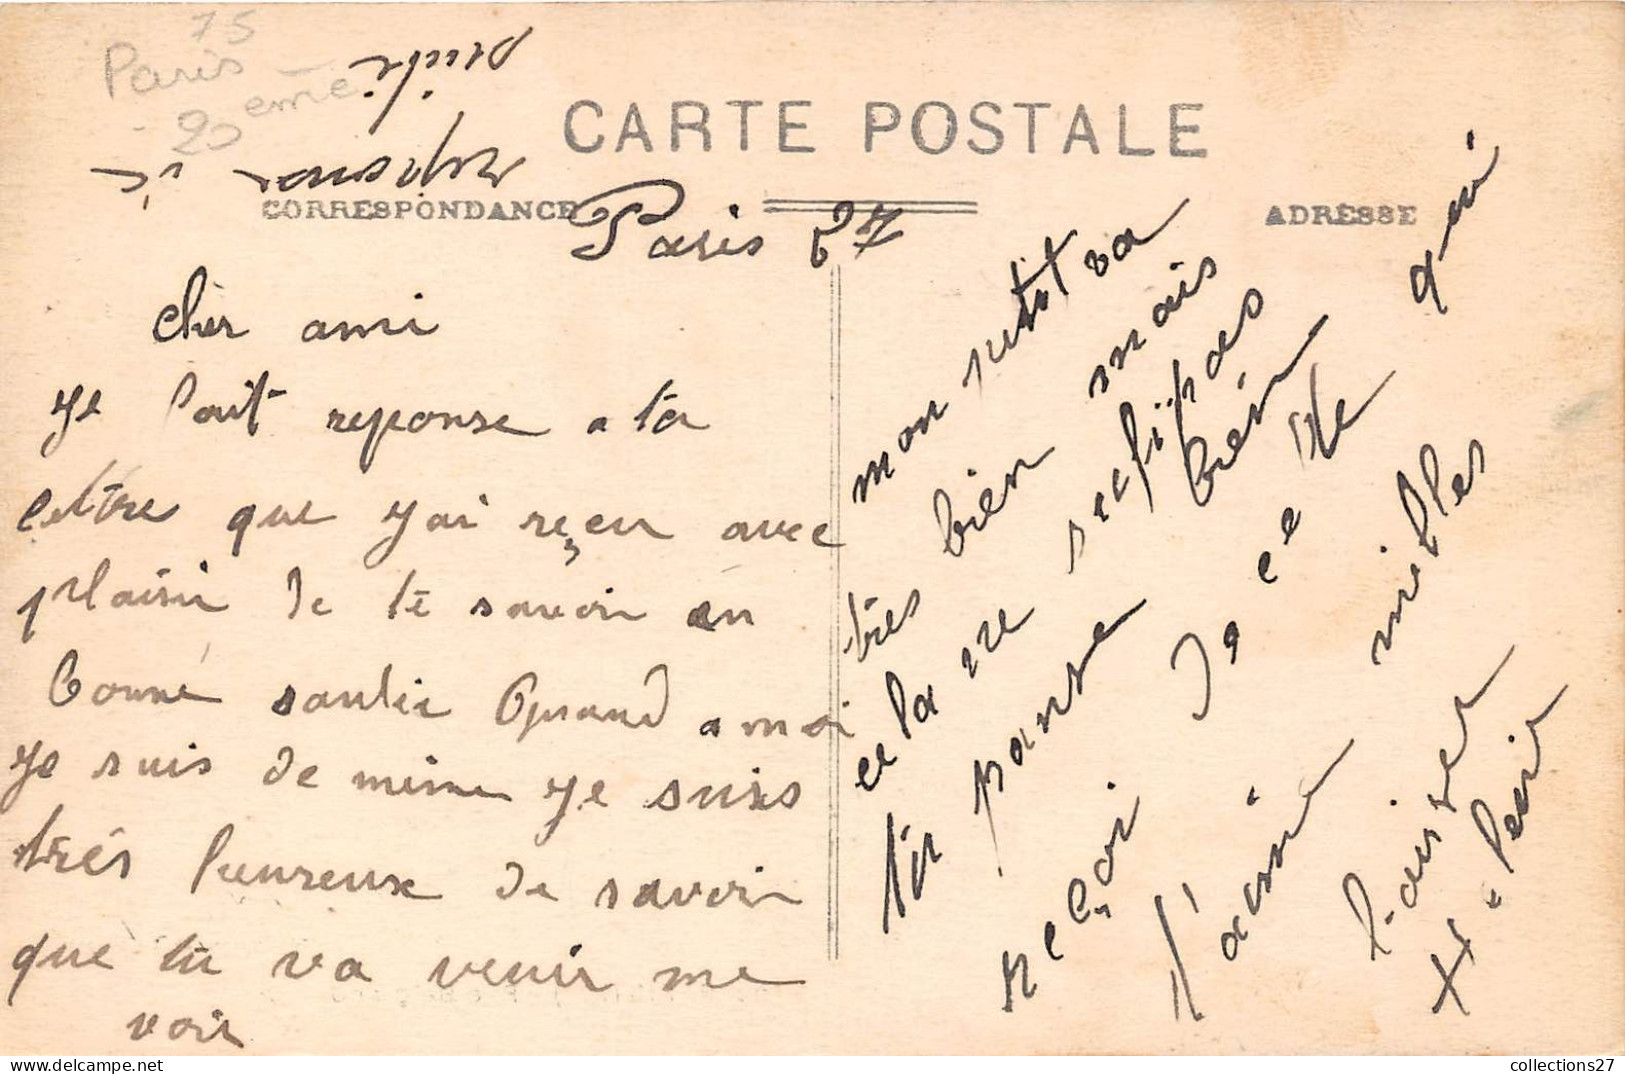 75
Paris
20 eme
CARTE POSTALE
CORRESPONDANCE
ADRESSE
Paris 27
cher ami
Je fait reponse a ta
lettre que j'ai reçeu avec
plaisir De te savoir en
bonne santie Quand a moi
Je suis de meme Je suis
très heureuse De savoir
que tu va venir me
voir
mon petit va
très bien mais
cela ne sufit pas
tu panse bien
reçoi De celle qui
t'aime milles
baiser
reponse
vite
collections27